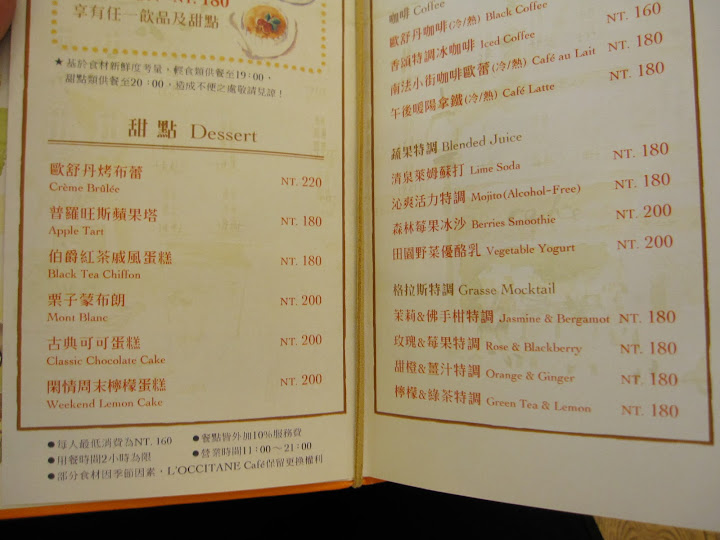 NT. 180
享有任一飲品及甜點
★基於食材新鮮度考量,輕食類供餐至19:00,
甜點類供餐至20:00,造成不便之處敬請見諒!
甜點 Dessert
歐舒丹烤布蕾
Crème Brûlée NT. 220
普羅旺斯蘋果塔
Apple Tart NT. 180
伯爵紅茶戚風蛋糕
Black Tea Chiffon NT. 180
栗子蒙布朗
Mont Blanc NT. 200
古典可可蛋糕
Classic Chocolate Cake NT. 200
閑情周末檸檬蛋糕
Weekend Lemon Cake NT. 200
●每人最低消費為NT. 160 ●餐點皆外加10%服務費
●用餐時間2小時為限 ●營業時間11:00~21:00
●部分食材因季節因素,L'OCCITANE Café保留更換權利
咖啡 Coffee
歐舒丹咖啡(冷/熱) Black Coffee NT. 160
香頌特調冰咖啡 Iced Coffee NT. 180
南法小街咖啡歐蕾(冷/熱) Café au Lait NT. 180
午後暖陽拿鐵(冷/熱) Café Latte NT. 180
蔬果特調 Blended Juice
清泉萊姆蘇打 Lime Soda NT. 180
沁爽活力特調 Mojito(Alcohol-Free) NT. 180
森林莓果冰沙 Berries Smoothie NT. 200
田園野菜優酪乳 Vegetable Yogurt NT. 200
格拉斯特調 Grasse Mocktail
茉莉&佛手柑特調 Jasmine & Bergamot NT. 180
玫瑰&莓果特調 Rose & Blackberry NT. 180
甜橙&薑汁特調 Orange & Ginger NT. 180
檸檬&綠茶特調 Green Tea & Lemon NT. 180